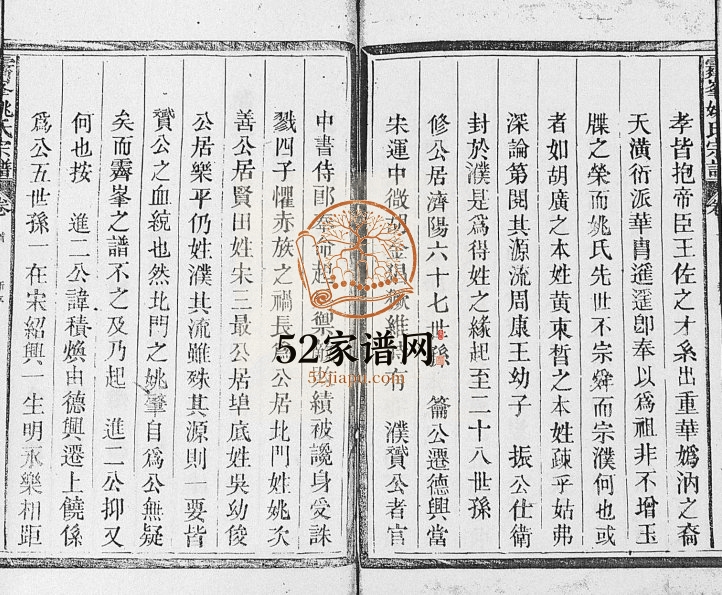 孝皆抱帝臣王佐之才系出重華媯汭之裔
天潢衍派華胄遙遙卽奉以爲祖非不增玉
牒之榮而姚氏先世不宗舜而宗濮何也或
者如胡廣之本姓黄束皙之本姓疎乎姑弗
深論第閱其源流周康王幼子 振公仕衛
封於濮是爲得姓之緣起至二十八世孫
修公居濟陽六十七世孫 籥公遷德興當
宋運中微胡金猖獗維時有 濮贇公者官
中書侍郎奉命起禦敵績被讒身受誅
戮四子懼赤族之禍長公居北門姓姚次
善公居賢田姓宋三最公居埠底姓吳幼俊
公居樂平仍姓濮其流雖殊其源則一要皆
贇公之血統也然北門之姚肇自爲公無疑
矣而霽峯之譜不之及乃起 進二公抑又
何也按 進二公諱積煥由德興遷上饒係
爲公五世孫一在宋紹興一生明永樂相距
霽峯姚氏宗譜 卷
霽峯姚氏宗譜
52家谱网
52jiapu.com